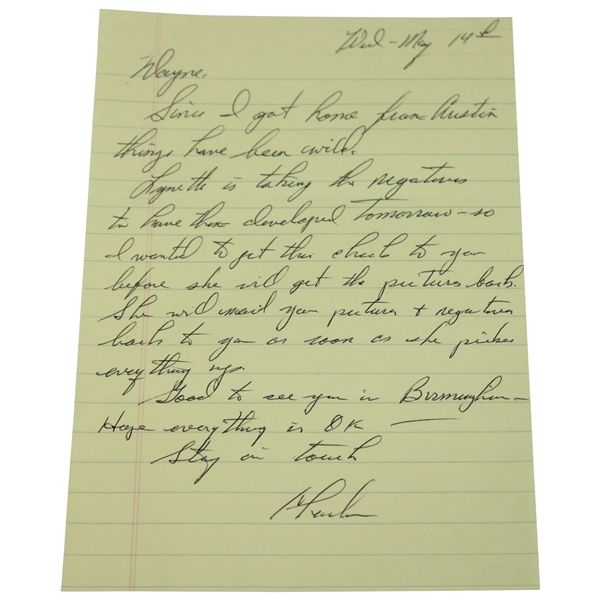 Wed - May 14th
Wayne,
Since I got home from Austin
things have been wild.
Lynette is taking the negatives
to have them developed tomorrow - so
I wanted to get this check to you
before she will get the pictures back.
She will mail your pictures + negatives
back to you as soon as she picks
everything up.
Good to see you in Birmingham -
Hope everything is OK —
Stay in touch